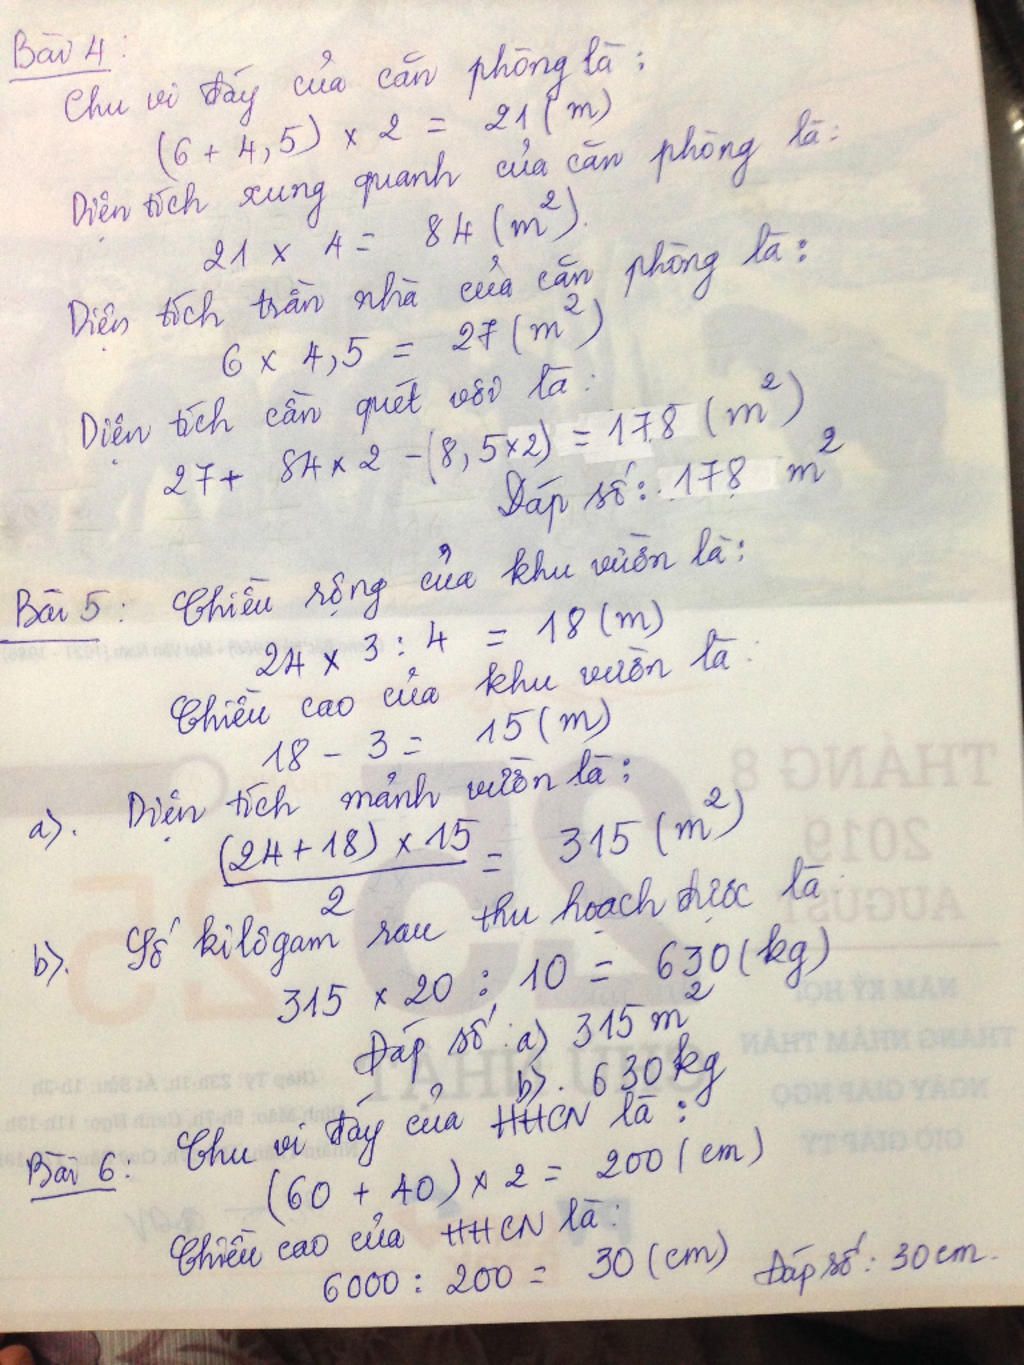 Bài 4:
Chu vi đáy của căn phòng là:
(6 + 4,5) x 2 = 21 (m)
Diện tích xung quanh của căn phòng là:
21 x 4 = 84 (m²).
Diện tích trần nhà của căn phòng là:
6 x 4,5 = 27 (m²)
Diện tích cần quét vôi là:
27 + 84 x 2 - (8,5x2) = 178 (m²)
Đáp số: 178 m²
Bài 5: Chiều rộng của khu vườn là:
24 x 3 : 4 = 18 (m)
Chiều cao của khu vườn là:
18 - 3 = 15 (m)
a). Diện tích mảnh vườn là:
(24 + 18) x 15 = 315 (m²)
2
b). Số kilôgam rau thu hoạch được là:
315 x 20 : 10 = 630 (kg)
Đáp số: a) 315 m²
b). 630 kg
Bài 6: Chu vi đáy của HHCN là:
(60 + 40) x 2 = 200 (cm)
Chiều cao của HHCN là:
6000 : 200 = 30 (cm) Đáp số: 30 cm.
THÁNG 8
2019
AUGUST
25
NĂM KỶ HỢI
THÁNG NHÂM THÂN
NGÀY GIÁP NGỌ
GIỜ GIÁP TÝ
CHỦ NHẬT